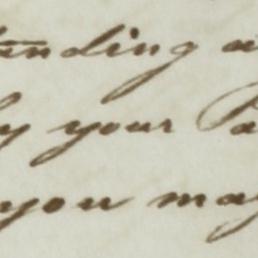 tending a
by your Pa
you may